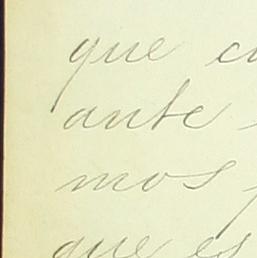 que
ante
mos
que es